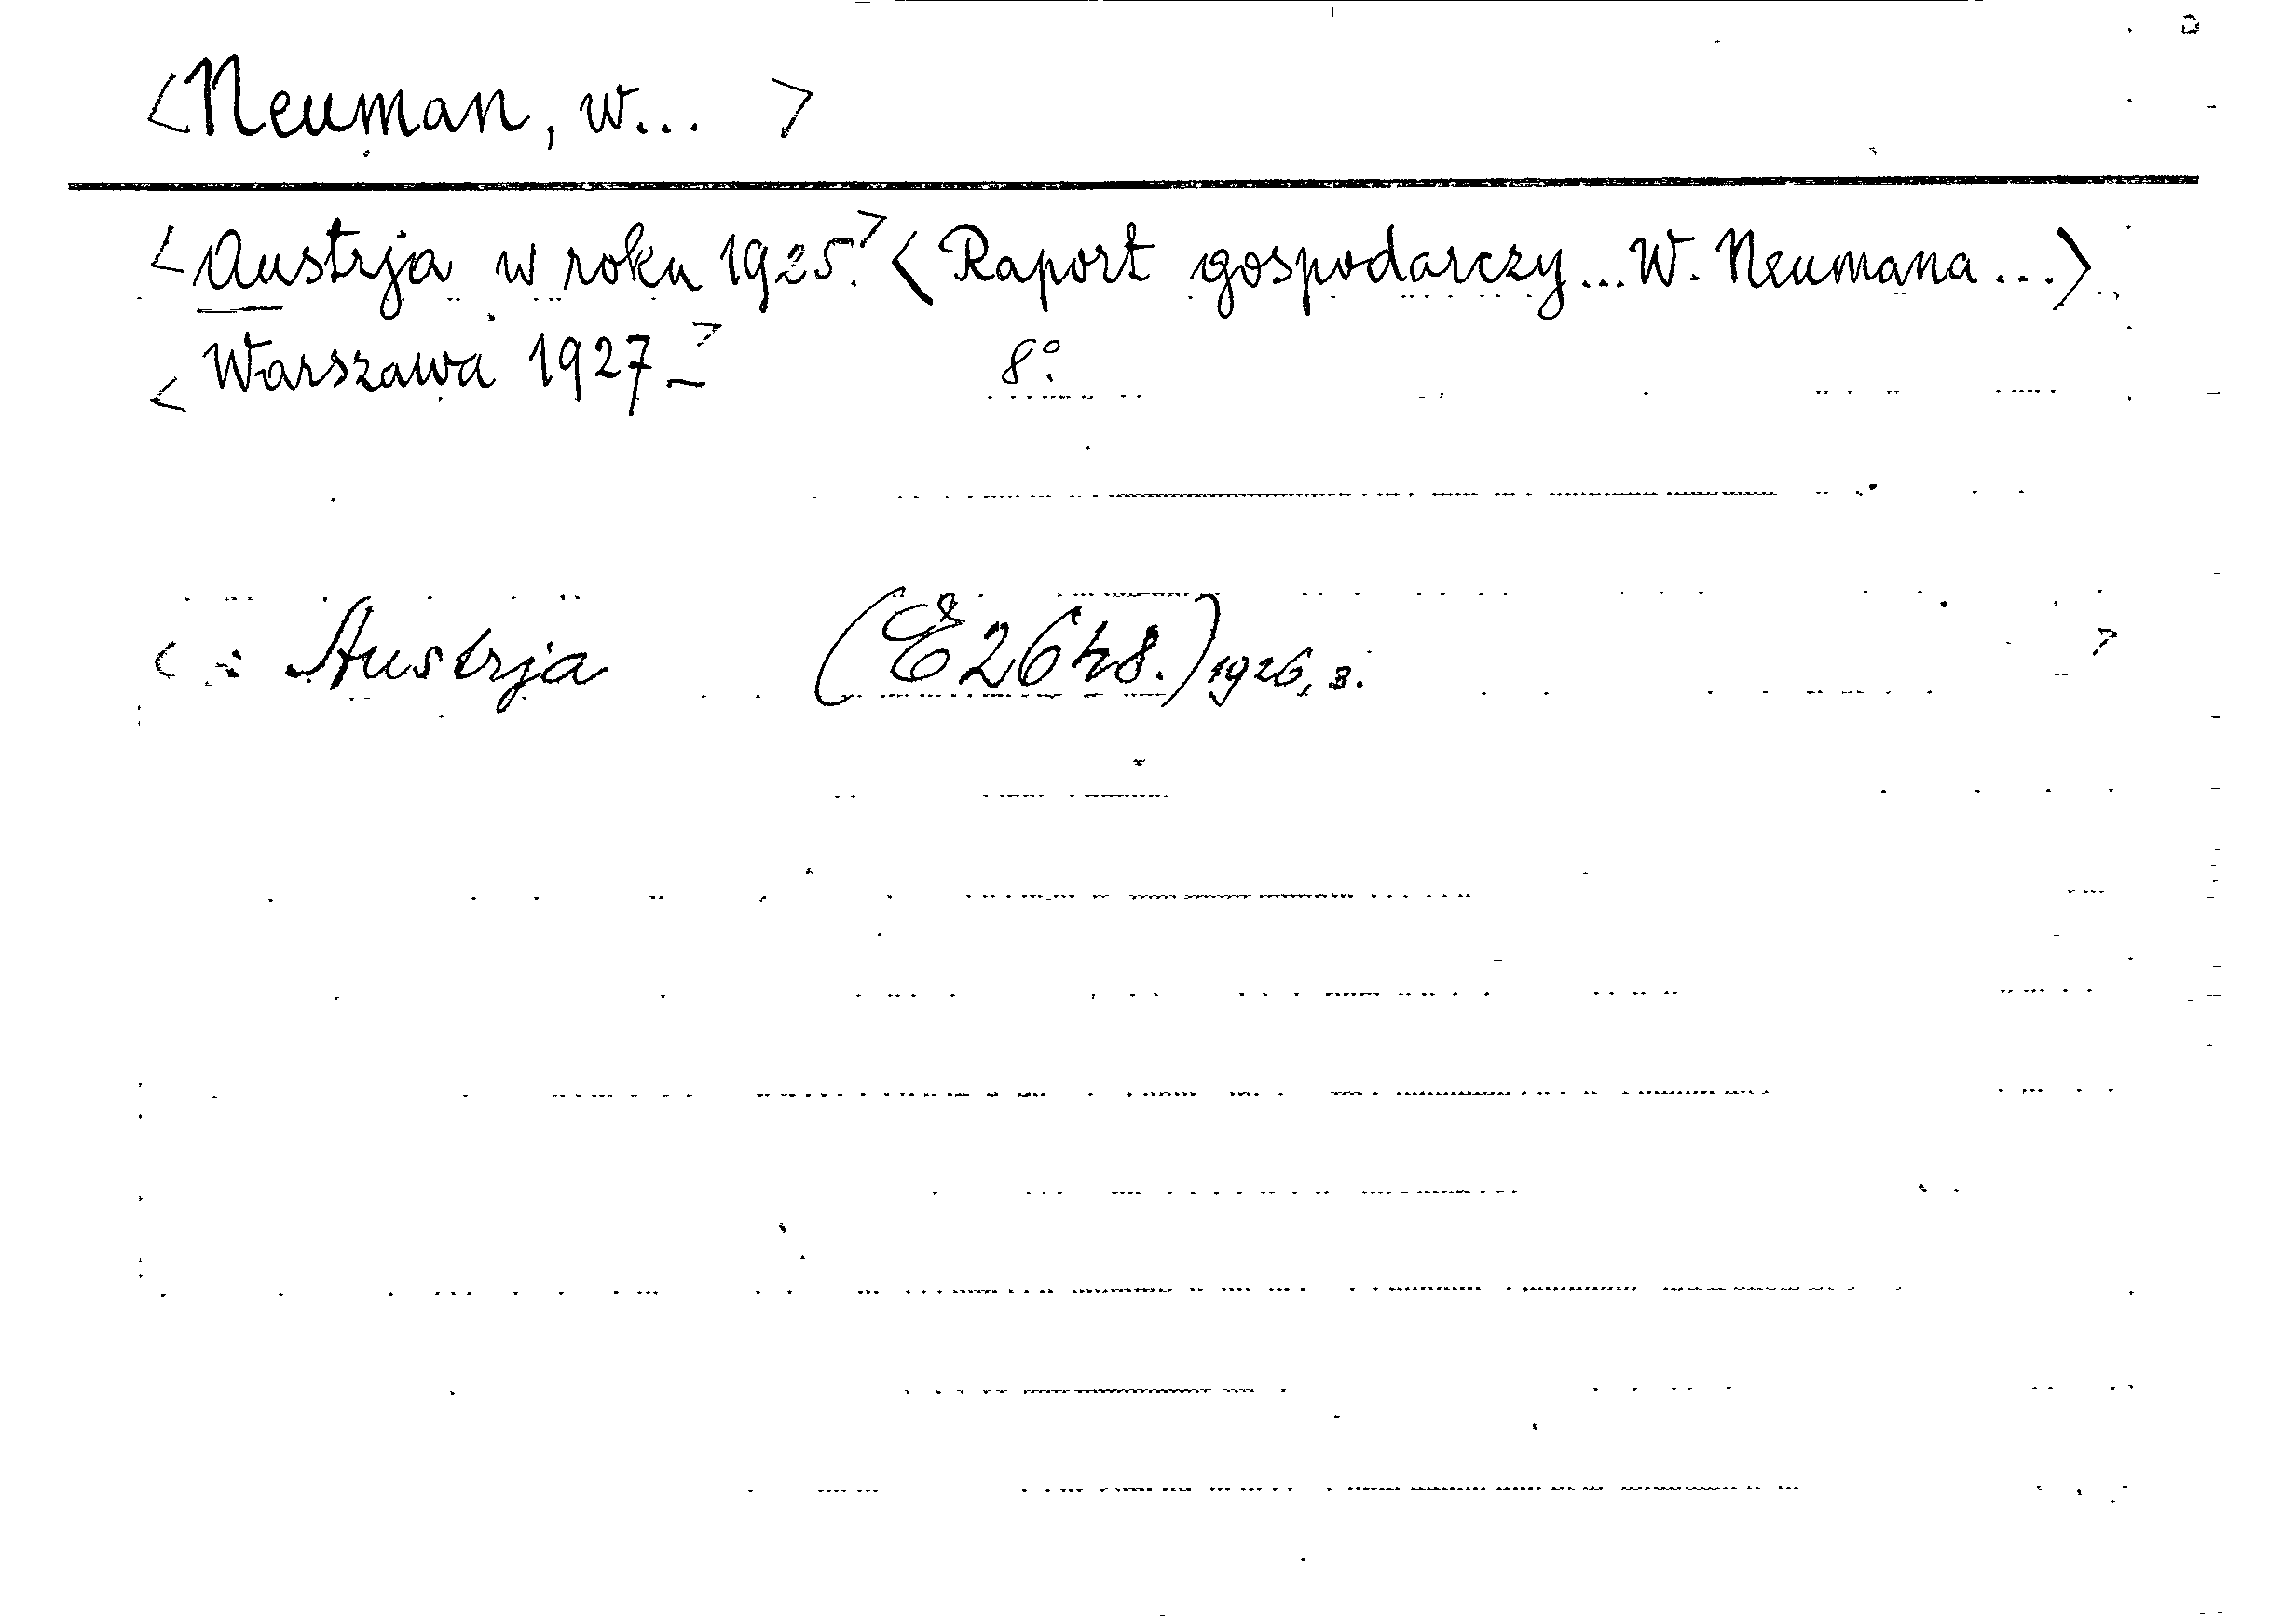 <Neuman, W... >
<Austrja w roku 1925.> <Raport gospodarczy... W. Neumana ...>
<Warszawa 1927.-> 8°.
< : Austrja (E 2648.) 1926, 3. >